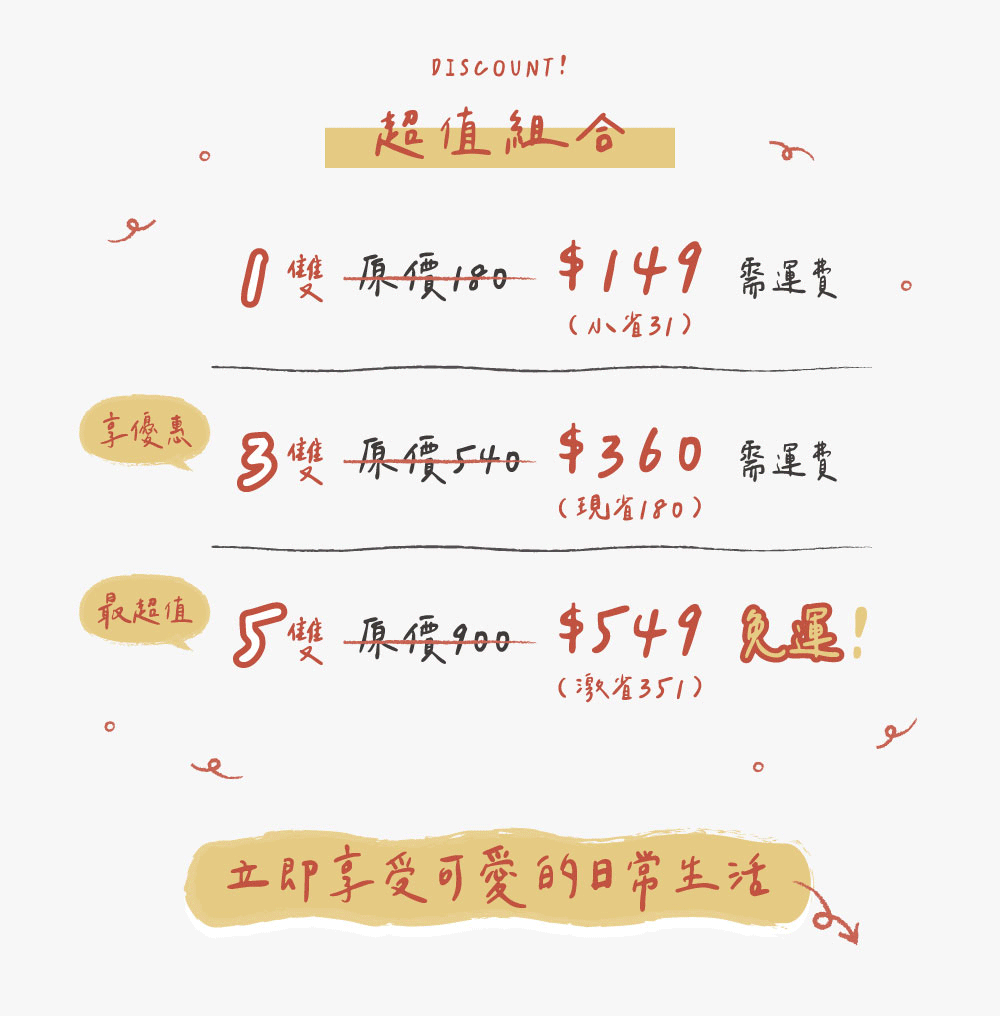 DISCOUNT!
超值組合
1雙 原價180 $149 需運費
(小省31)
享優惠
3雙 原價540 $360 需運費
(現省180)
最超值
5雙 原價900 $549 免運!
(激省351)
立即享受可愛的日常生活